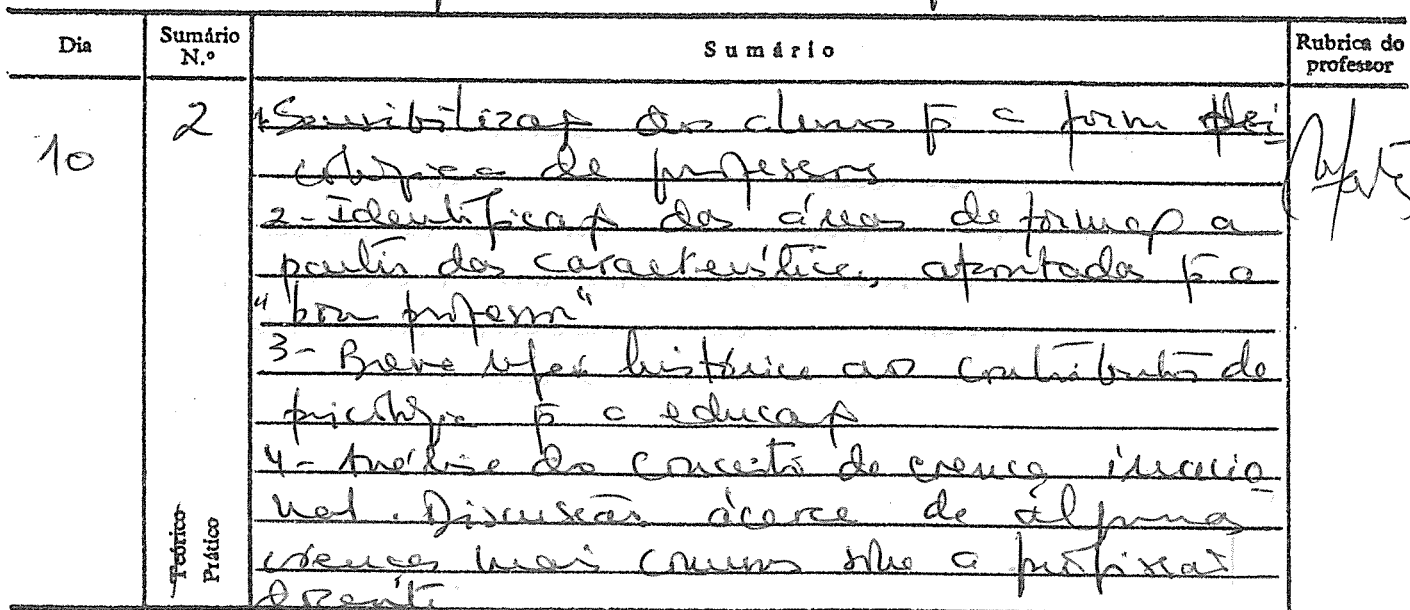 Dia
Sumário N.º
Sumário
Rubrica do professor
10
2
1-Sensibilizaç dos alunos p a form psi
cológica de professores
2-Identificaç das áreas de formaç a
partir das características apontadas p o
"bom professor"
3- Breve refer histórica ao contributo da
psicologia p a educaç
4- Análise do conceito de crença irracio
nal. Discussão ácerca de algumas
crenças mais comuns sobre a profissão
docente
Teórico
Prático